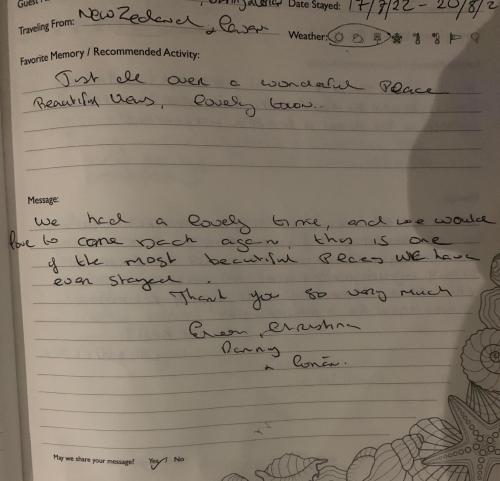 Date Stayed: 17/7/22 - 20/8/2
Traveling From: New Zealand,
Weather:
Favorite Memory / Recommended Activity:
Just all over a wonderful Place
Beautiful Views, lovely town..
Message:
We had a lovely time, and we would
love to come back again, this is one
of the most beautiful Places we have
ever stayed.
Thank you so very much
Christina
Danny
Conán.
May we share your message? Yes No